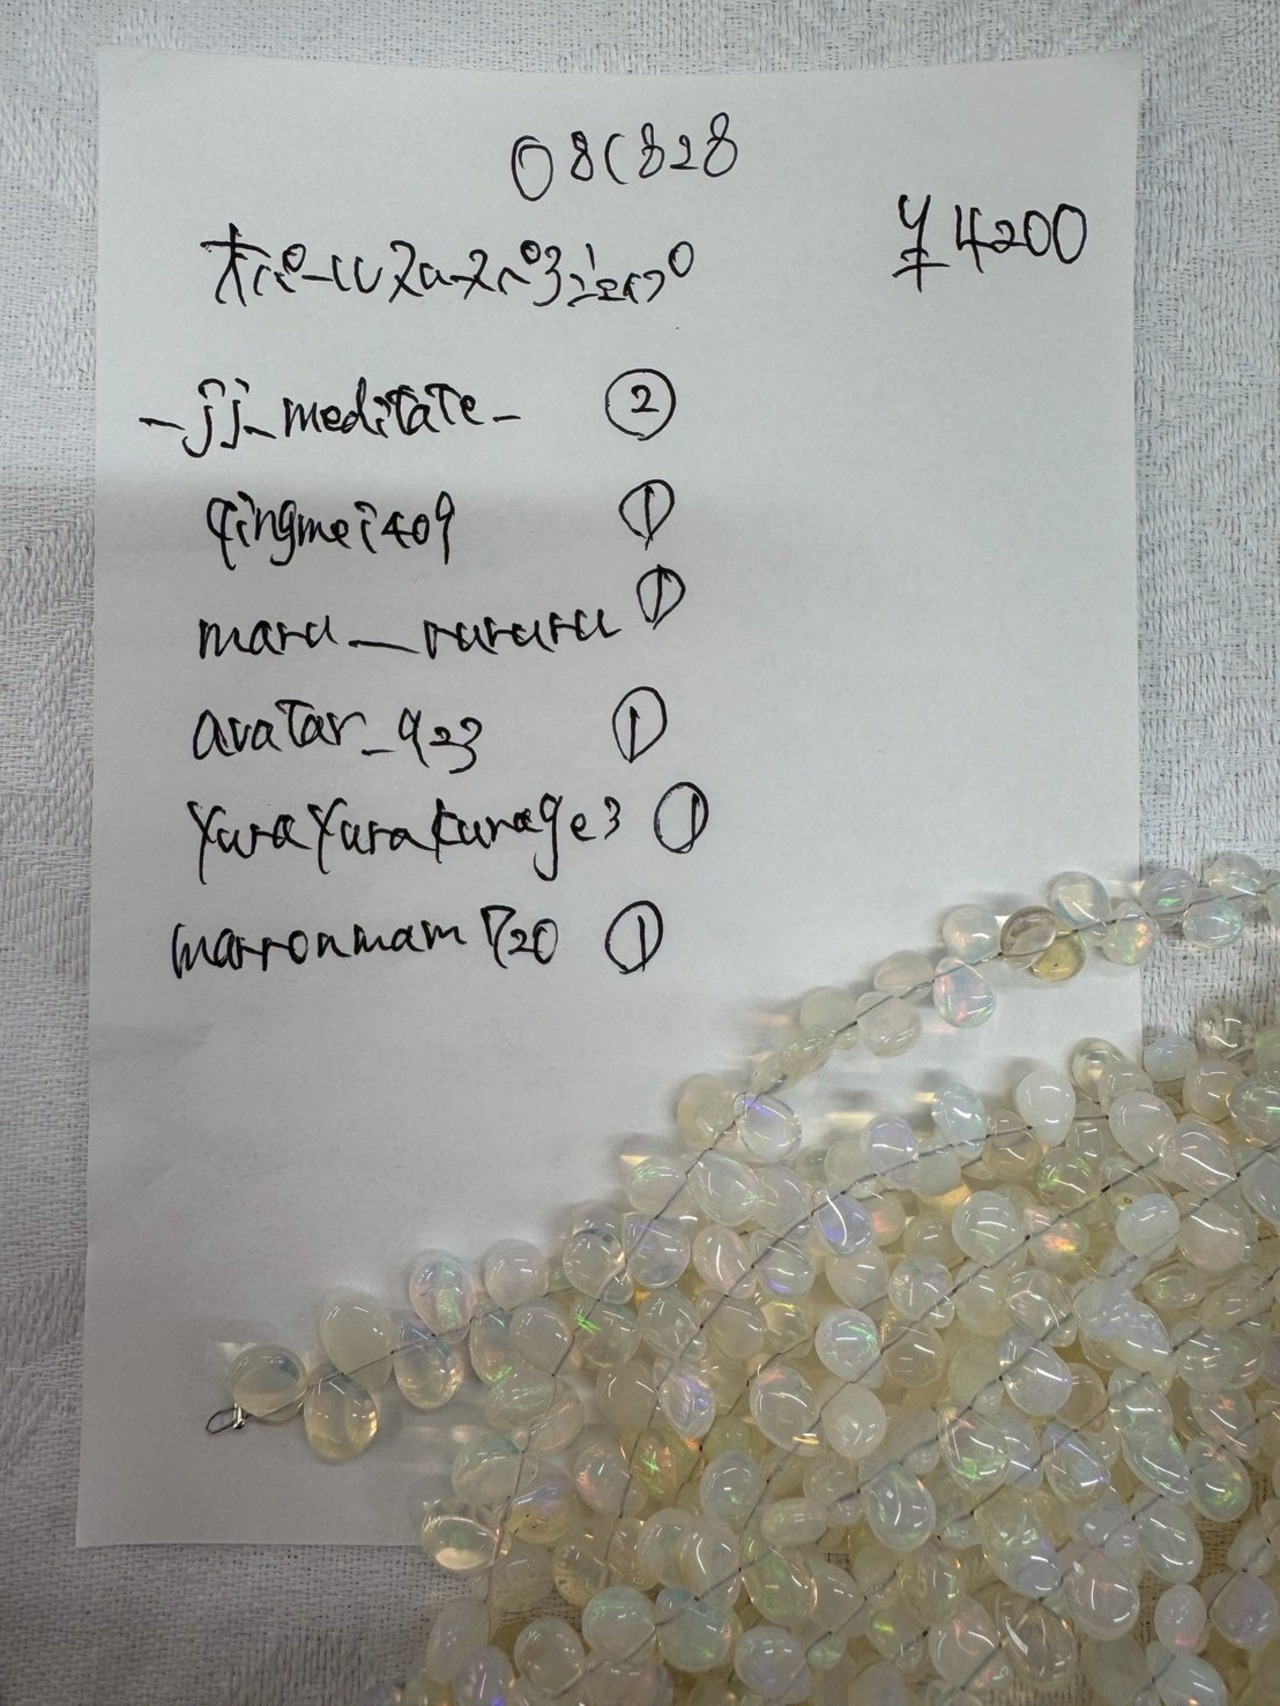 08C828
¥4200
_jj_meditate_ ②
qingmei409 ①
maru_rururu ①
avatar_923 ①
yurayurakurage3 ①
marronmam720 ①